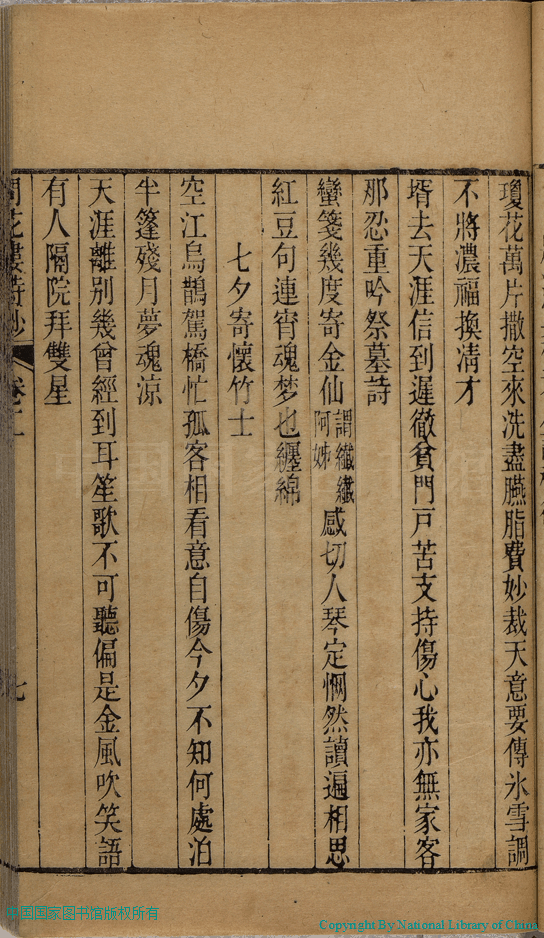 瓊花萬片撒空來洗盡臙脂費妙裁天意要傳氷雪調
不將濃福換淸才
壻去天涯信到遲徹貧門戸苦支持傷心我亦無家客
那忍重吟祭墓詩
蠻箋幾度寄金仙謂纖纖阿姊感切人琴定惘然讀遍相思
紅豆句連宵魂梦也纏綿
七夕寄懷竹士
空江烏鵲駕橋忙孤客相看意自傷今夕不知何處泊
半篷殘月夢魂涼
天涯離别幾曾經到耳笙歌不可聽偏是金風吹笑語
有人隔院拜雙星
花樓詩鈔
卷二
七
中国国家图书馆版权所有
Copyright By National Library of China